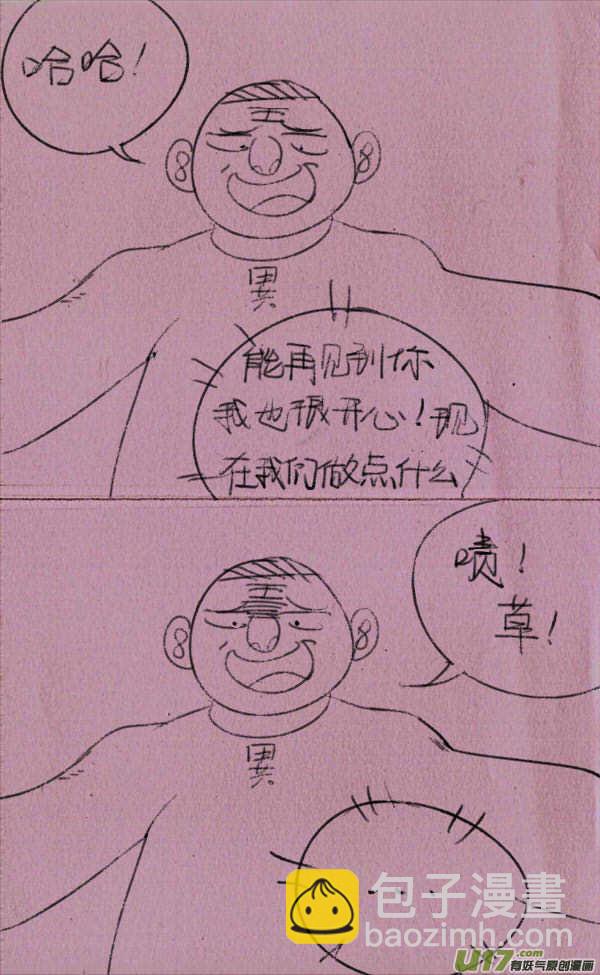 哈哈！
五
異
能再见到你
我也很开心！现
在我们做点什么
啧！
草！
五
異
...
包子漫畫
baozimh.com
U17.com
有妖气原创漫画